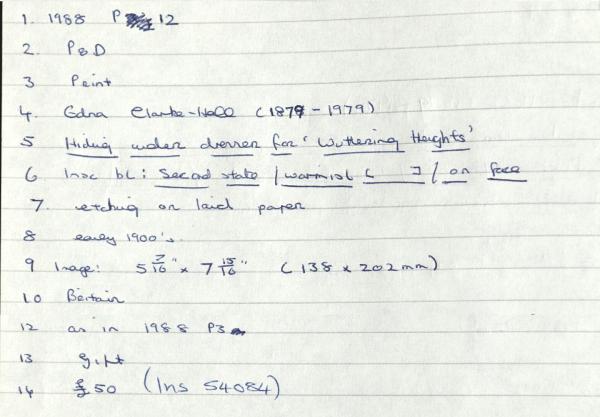 1. 1988 P 12
2. P&D
3 Print
4. Edna Clarke-Hall (1879-1979)
5 Hiding under dresser for 'Wuthering Heights'
6 Insc bl: Second state / warmist [ ] / on face
7. etching on laid paper
8 early 1900's.
9 Image: 5 7/16" x 7 15/16" (138 x 202mm)
10 Britain
12 as in 1988 P3
13 gift
14 £50 (Ins 54084)